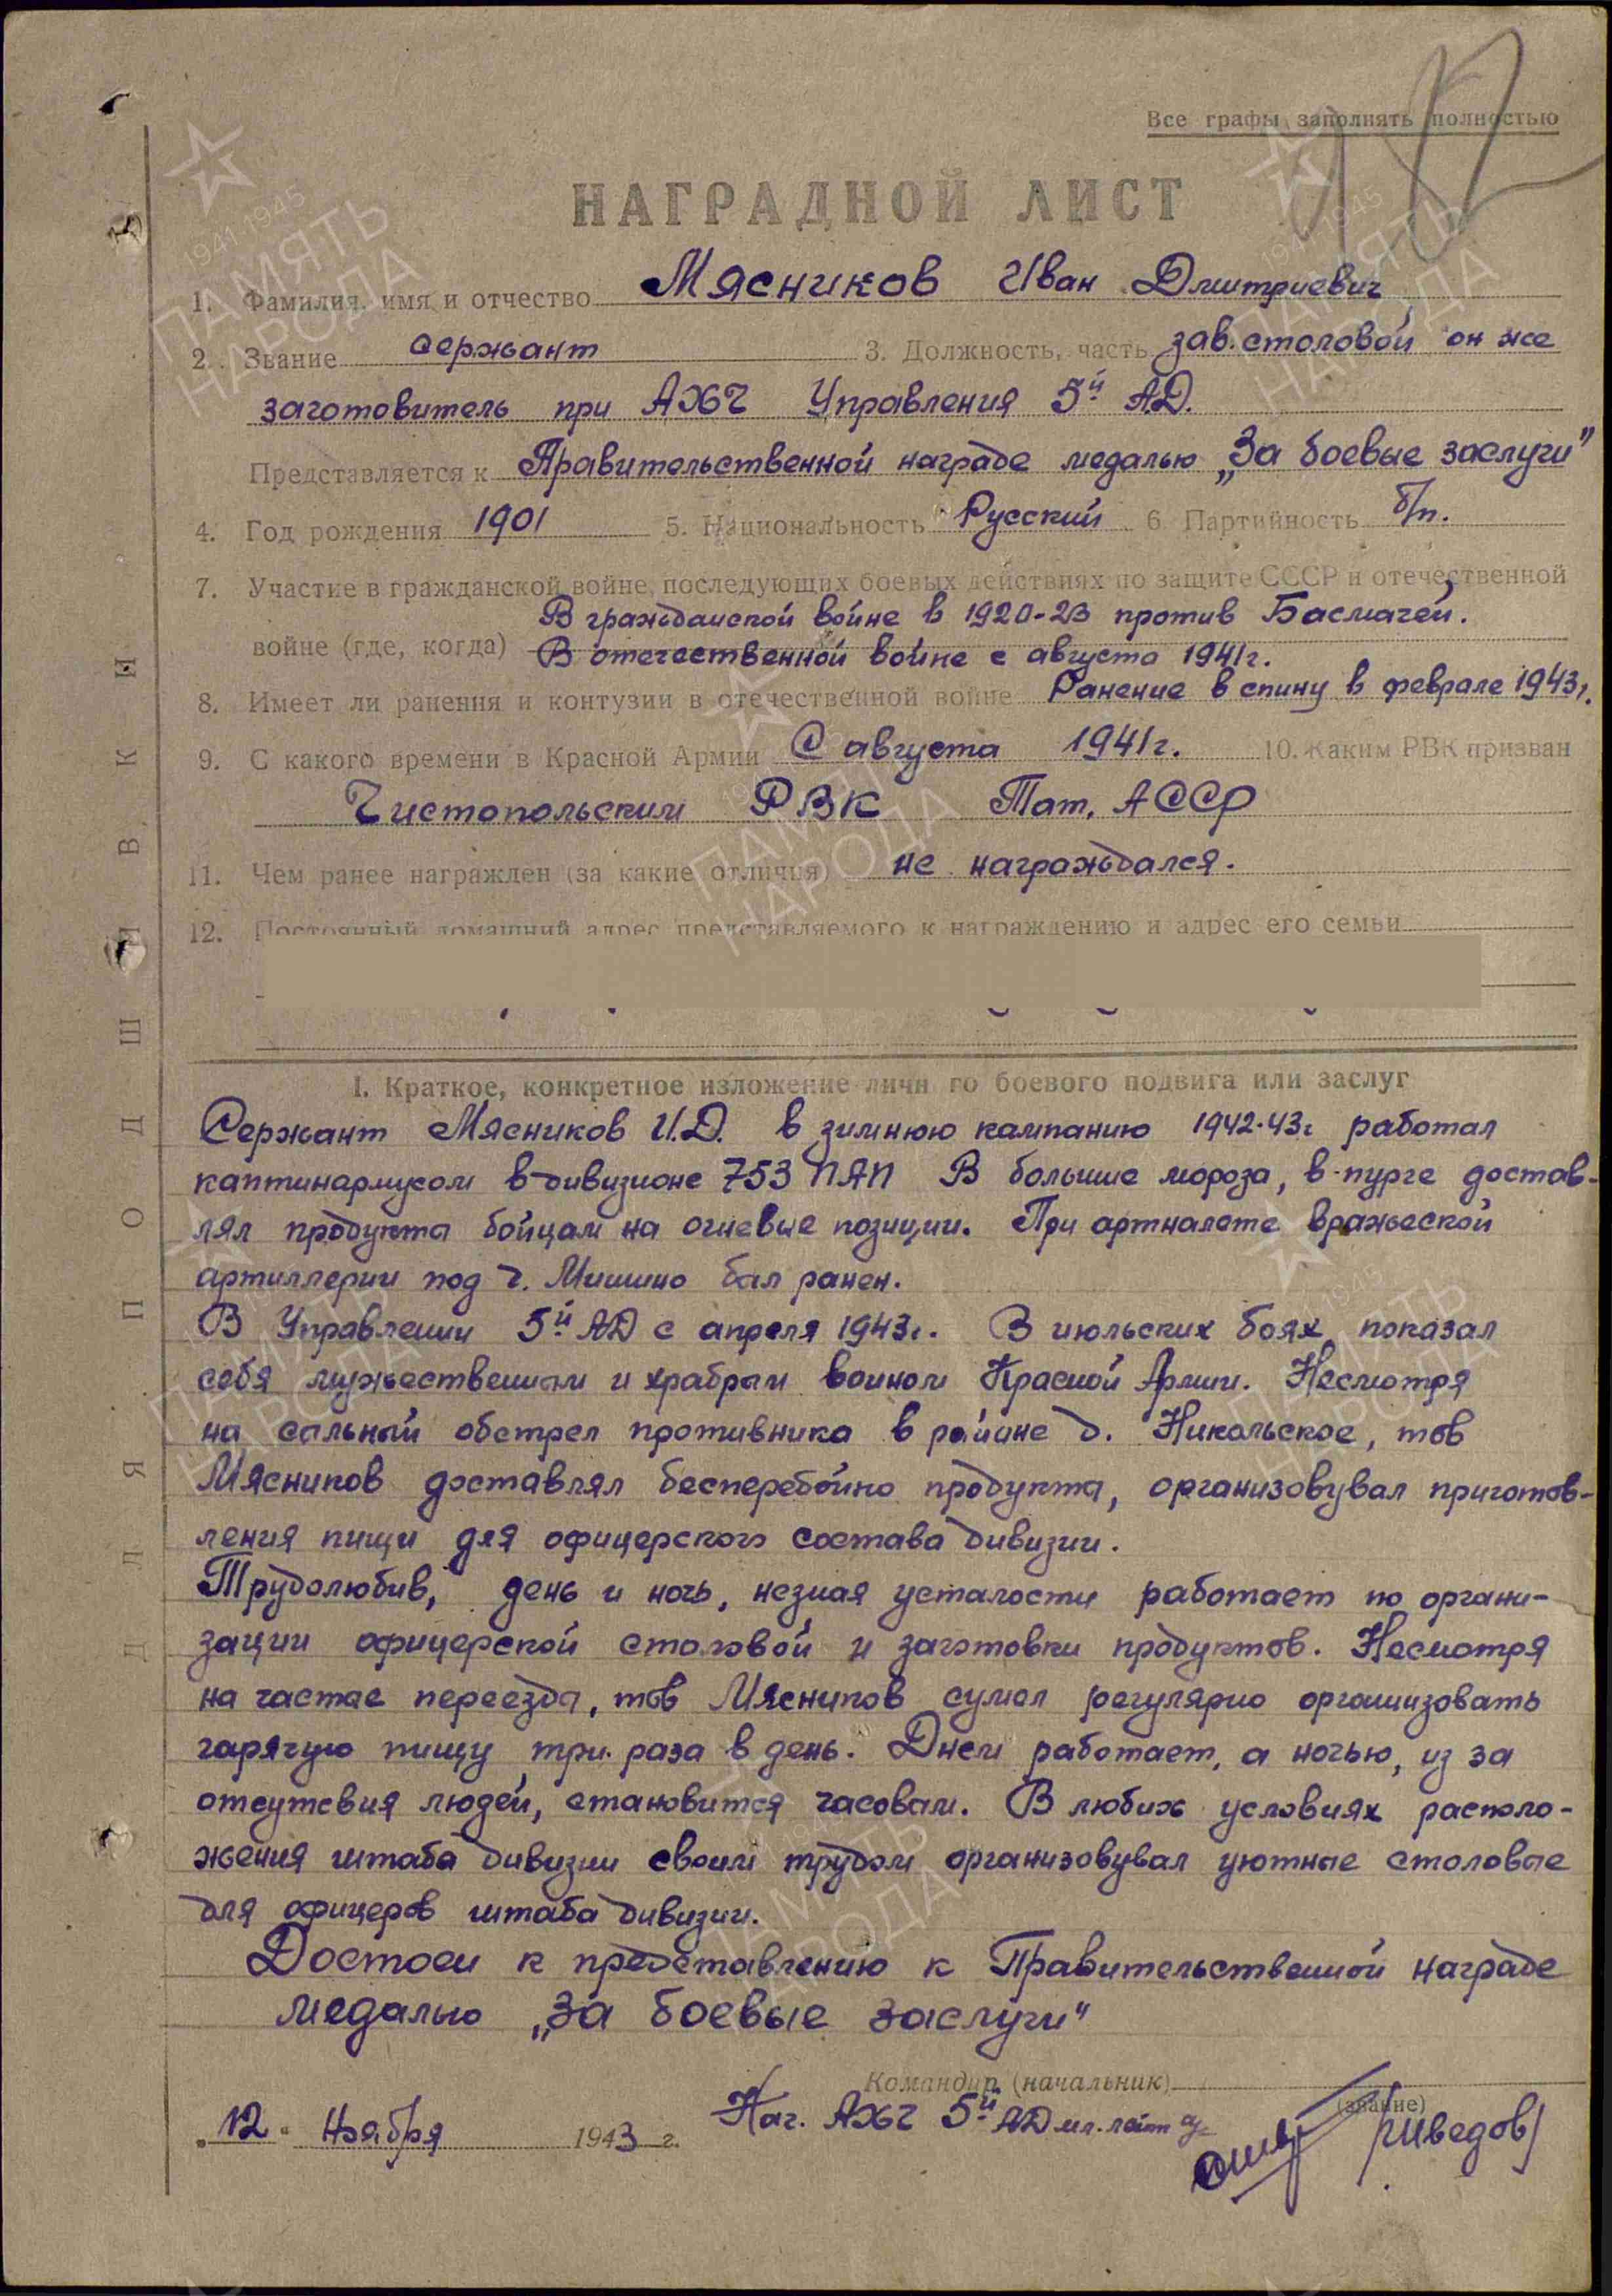 Все графы заполнять полностью
НАГРАДНОЙ ЛИСТ
1. Фамилия, имя и отчество Мясников Иван Дмитриевич
2. Звание сержант 3. Должность, часть зав. столовой он же
заготовитель при АХЧ Управления 5й АД.
Представляется к Правительственной награде медалью „За боевые заслуги"
4. Год рождения 1901 5. Национальность Русский 6. Партийность б/п.
7. Участие в гражданской войне, последующих боевых действиях по защите СССР и отечественной
В гражданской войне в 1920-23 против Басмачей.
войне (где, когда) В отечественной войне с августа 1941г.
8. Имеет ли ранения и контузии в отечественной войне Ранение в спину в феврале 1943г.
9. С какого времени в Красной Армии С августа 1941г. 10. Каким РВК призван
Чистопольским РВК Тат. АССР
11. Чем ранее награжден (за какие отличия) не награждался.
12. Постоянный домашний адрес представляемого к награждению и адрес его семьи
I. Краткое, конкретное изложение личн го боевого подвига или заслуг
Сержант Мясников И.Д. в зимнюю кампанию 1942-43г работал
каптинармусом в дивизионе 753 ПАП В большие мороза, в пурге достав-
лял продукты бойцам на огневые позиции. При артналете вражеской
артиллерии под г. Мишино был ранен.
В Управлении 5й АД с апреля 1943г. В июльских боях показал
себя мужественным и храбрым воином Красной Армии. Несмотря
на сильный обстрел противника в районе д. Никольское, тов
Мясников доставлял бесперебойно продукты, организовувал приготов-
ления пищи для офицерского состава дивизии.
Трудолюбив, день и ночь, незная усталости работает по органи-
зации офицерской столовой и заготовки продуктов. Несмотря
на частые переезды, тов Мясников сумел регулярно организовать
гарячую пищу три раза в день. Днем работает, а ночью, из за
отсутсвия людей, становится часовым. В любых условиях располо-
жения штаба дивизии своим трудом организовувал уютные столовые
для офицеров штаба дивизии.
Достоен к представлению к Правительственной награде
медалью „За боевые заслуги"
Командир (начальник)
(звание)
Нач. АХЧ 5й АД мл. лейт /Шведов/
„12" Ноября 1943 г.
ДЛЯ ПОДШИВКИ
1941-1945
ПАМЯТЬ
НАРОДА